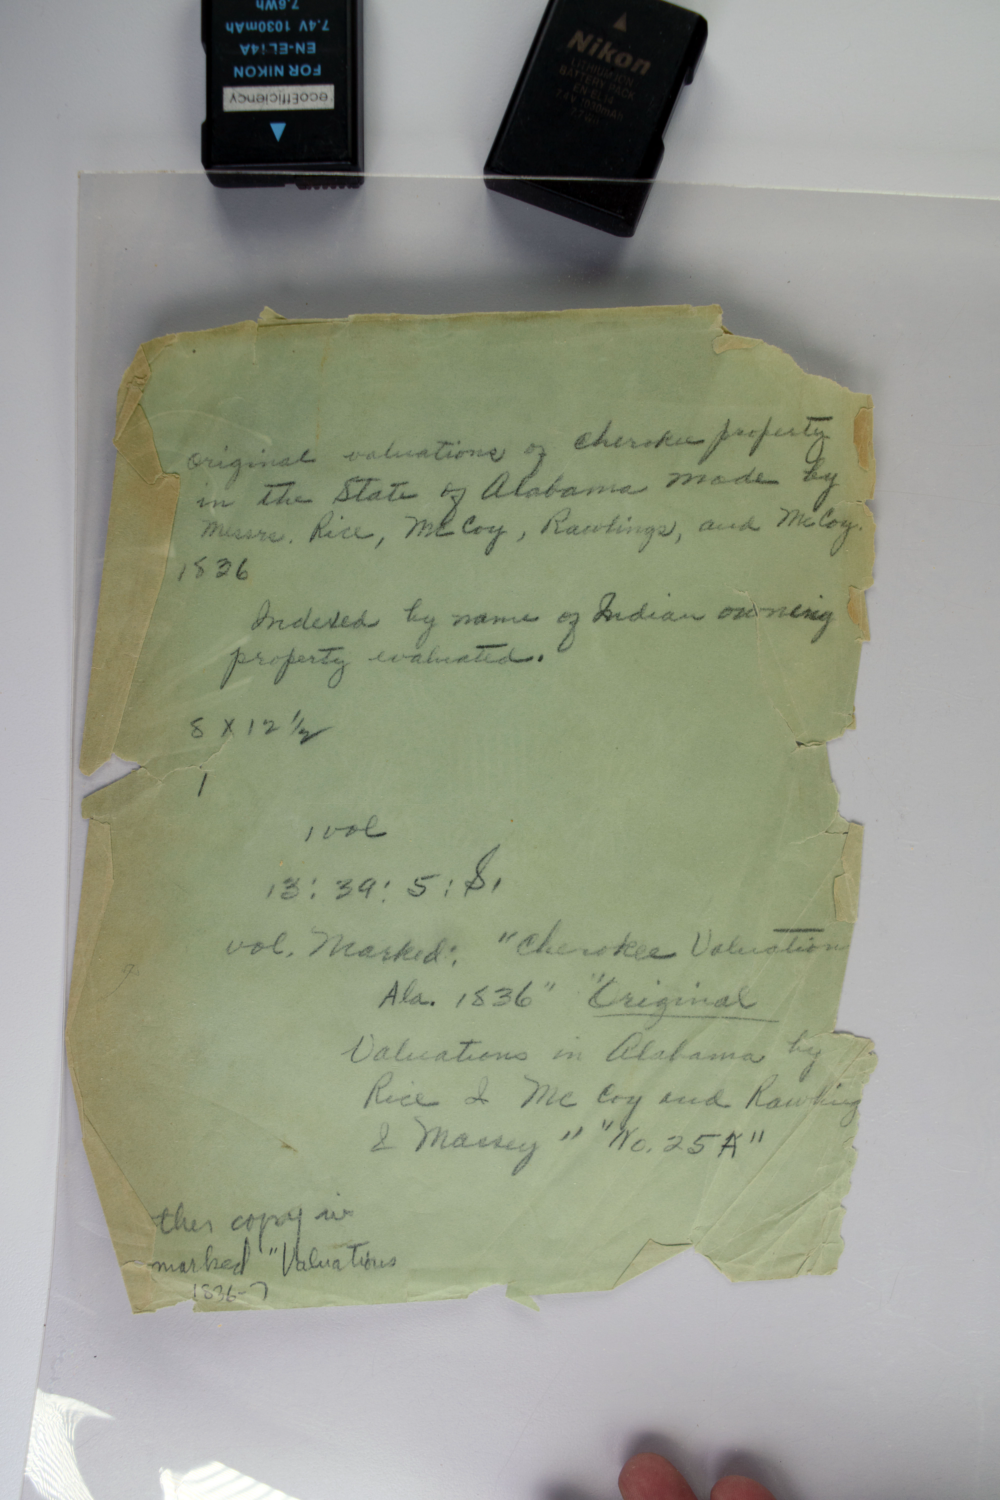 7.6Wh
7.4V 1030mAh
EN-EL14A
FOR NIKON
ecoEfficiency
Nikon
LITHIUM ION
BATTERY PACK
EN-EL14
7.4V 1030mAh
Original valuations of Cherokee property
in the State of Alabama made by
Messrs. Rice, McCoy, Rawlings, and McCoy.
1836
Indexed by name of Indian owning
property evaluated.
8 X 12 1/2
1
1 vol
13: 39: 5: S.
vol. Marked: "Cherokee Valuation
Ala. 1836" "Original
Valuations in Alabama by
Rice & McCoy and Rawling
& Massey" "No. 25A"
ther copy is
marked "Valuations
1836-7